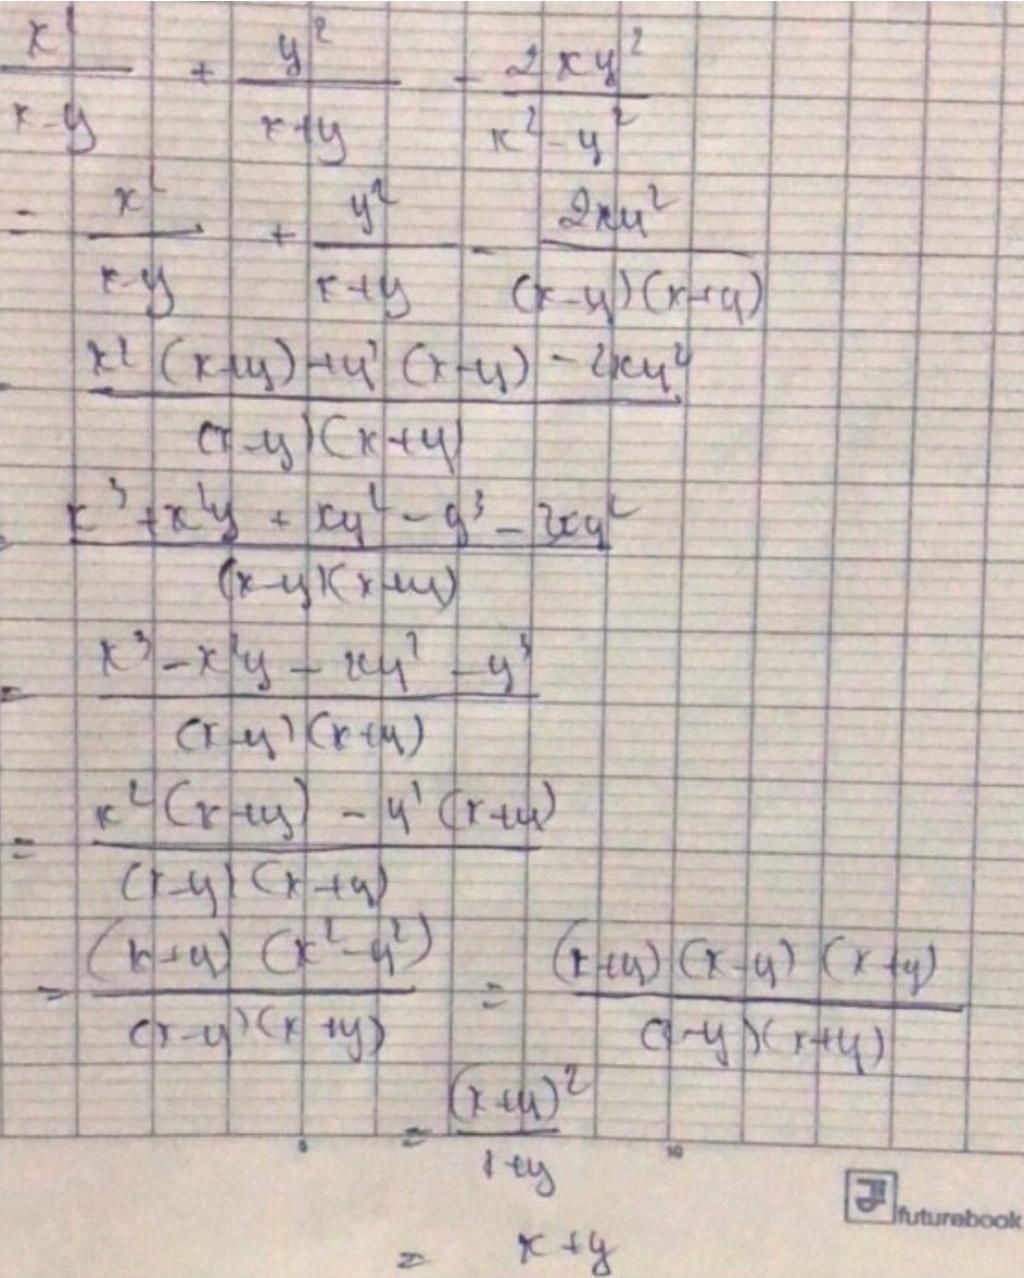 x²/(x-y) + y²/(x+y) - 2xy²/(x²-y²)
= x²/(x-y) + y²/(x+y) - 2xy²/((x-y)(x+y))
= (x²(x+y)+y²(x-y)-2xy²)/((x-y)(x+y))
= (x³+x²y+xy²-y³-2xy²)/((x-y)(x+y))
= (x³-x²y-xy²-y³)/((x-y)(x+y))
= (x²(x+y)-y²(x+y))/((x-y)(x+y))
= ((x+y)(x²-y²))/((x-y)(x+y)) = ((x+y)(x-y)(x+y))/((x-y)(x+y))
= (x+y)²/(x+y)
10
futurebook
= x+y